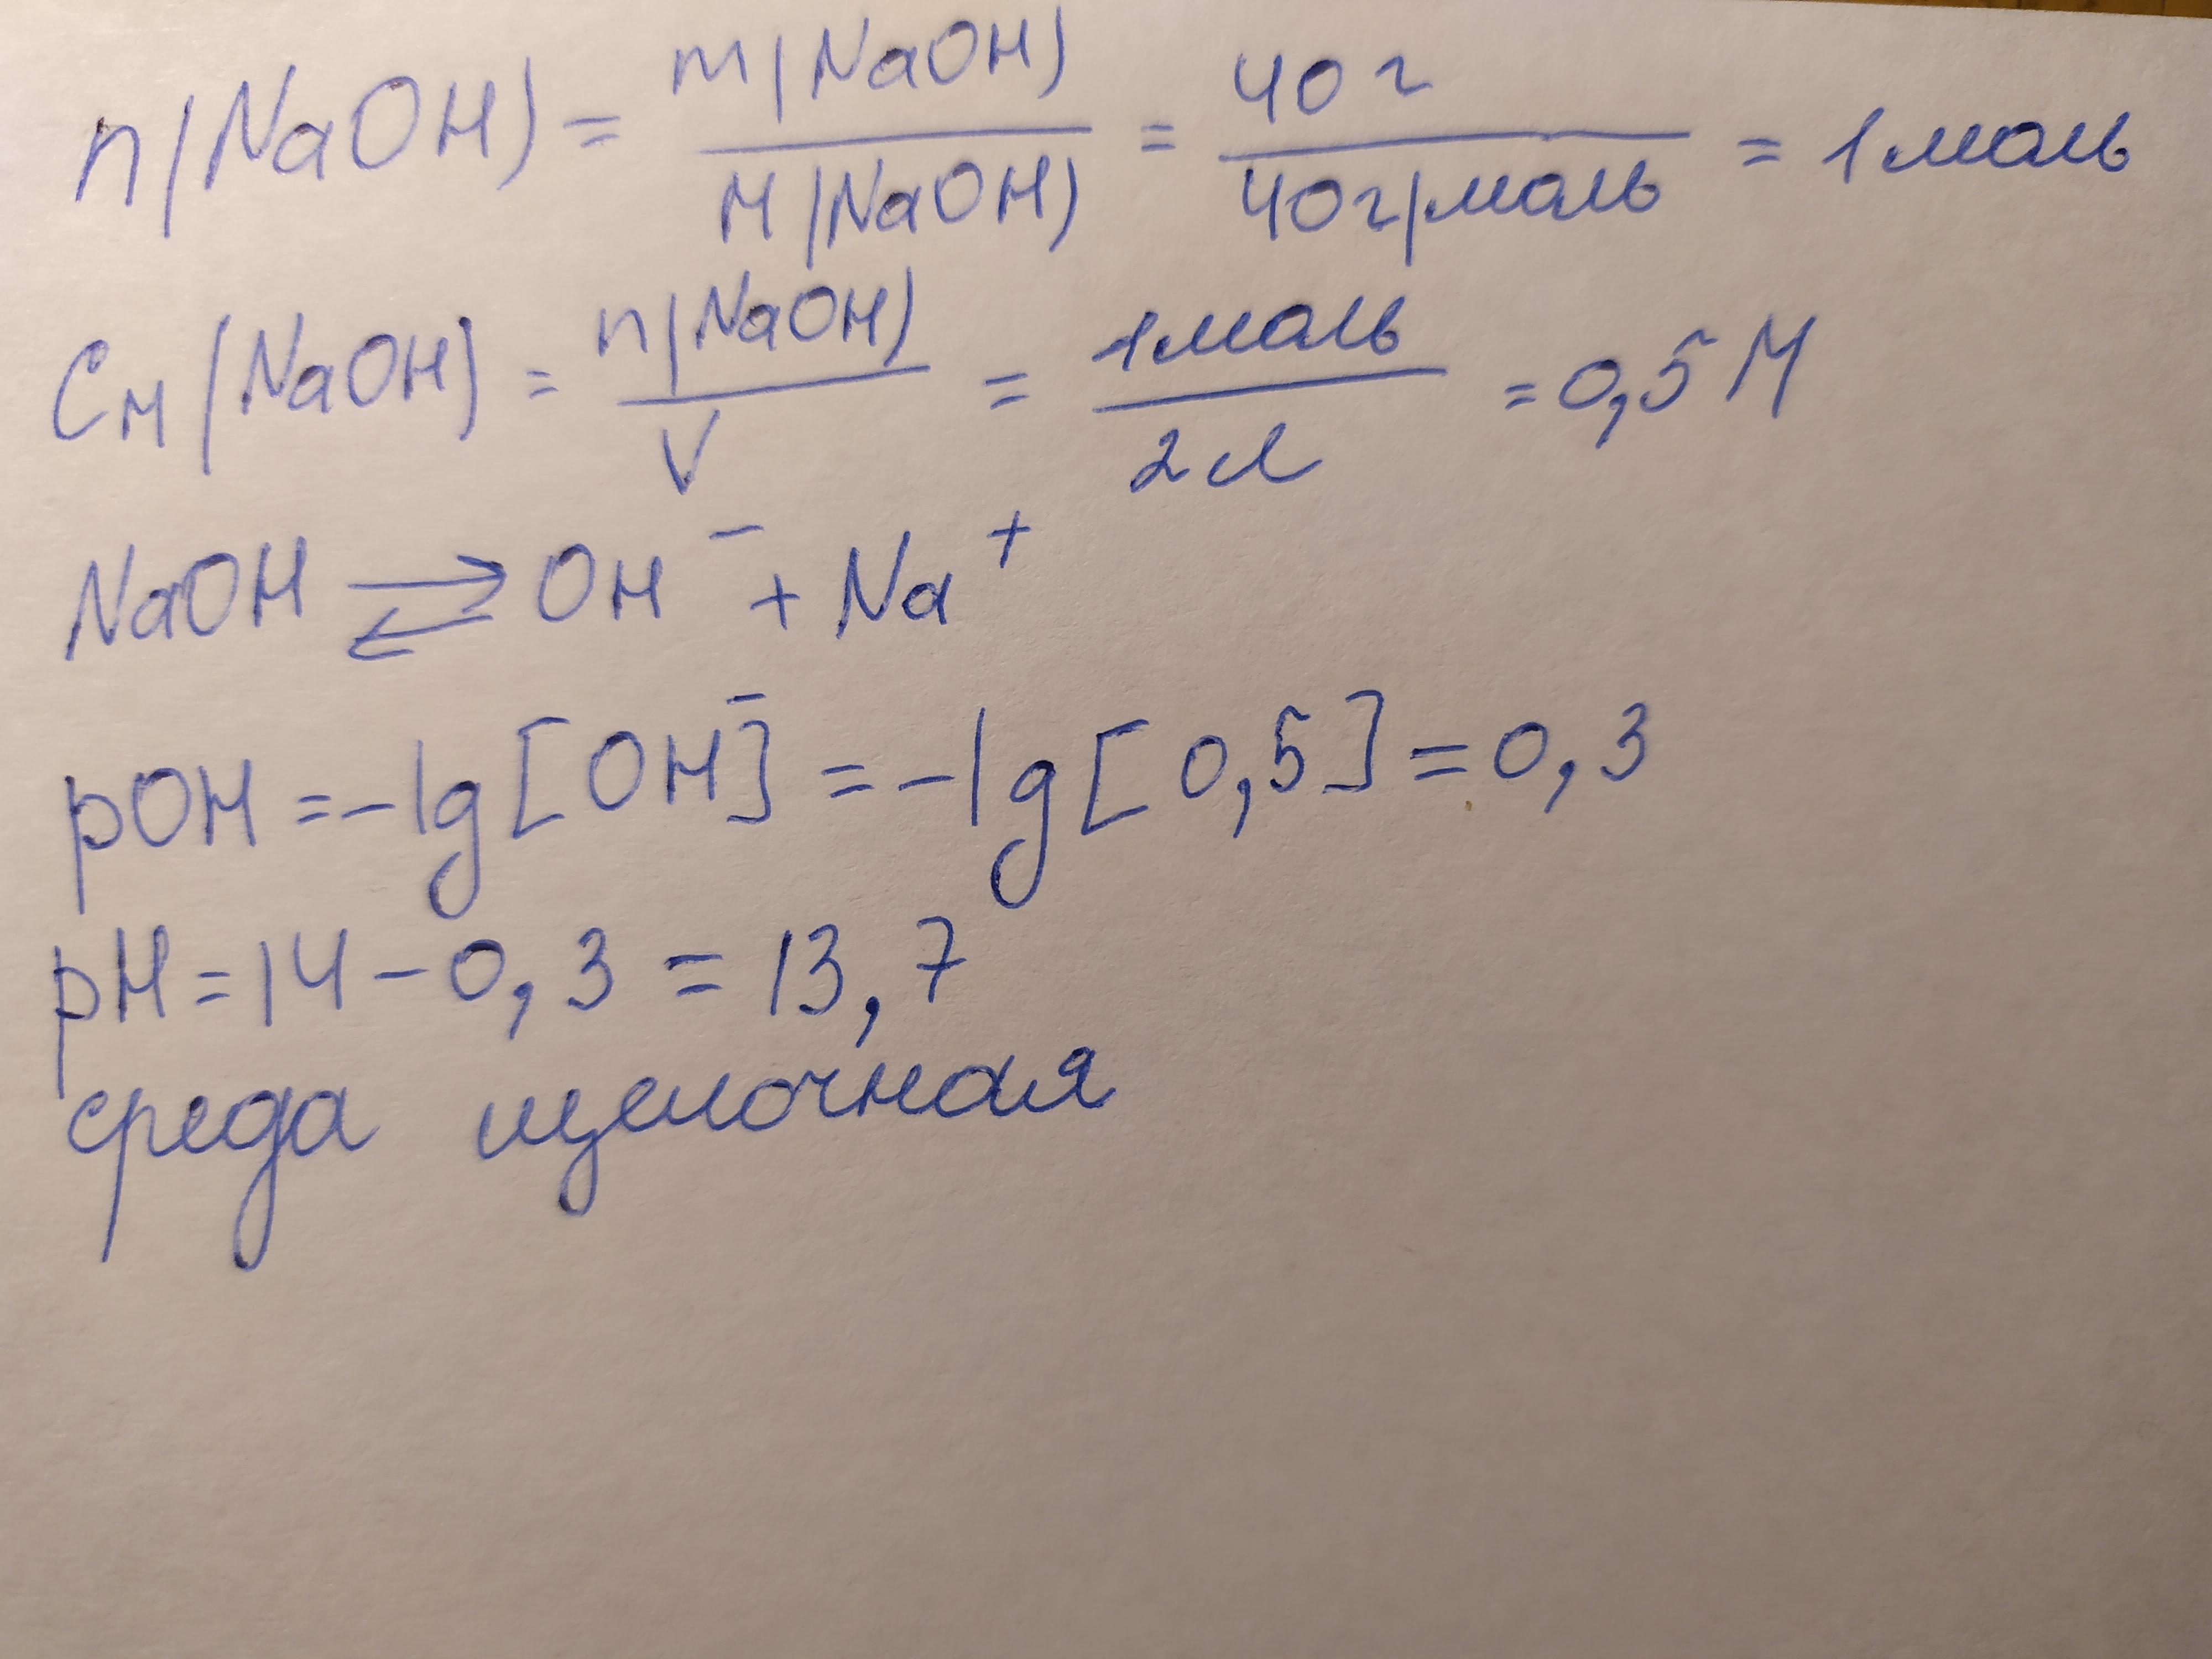 n(NaOH) = m(NaOH) / M(NaOH) = 40 г / 40 г/моль = 1 моль
Cм(NaOH) = n(NaOH) / V = 1 моль / 2 л = 0,5 М
NaOH ⇄ OH⁻ + Na⁺
pOH = -lg[OH⁻] = -lg[0,5] = 0,3
pH = 14 - 0,3 = 13,7
среда щелочная